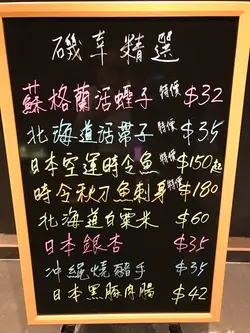 磯車精選
蘇格蘭活蟶子 特價 $32
北海道活帶子 特價 $35
日本空運時令魚 特價 $150起
時令秋刀魚刺身 特價 $180
北海道白粟米 $60
日本銀杏 $35
沖繩燒豬手 $35
日本黑豚肉腸 $42